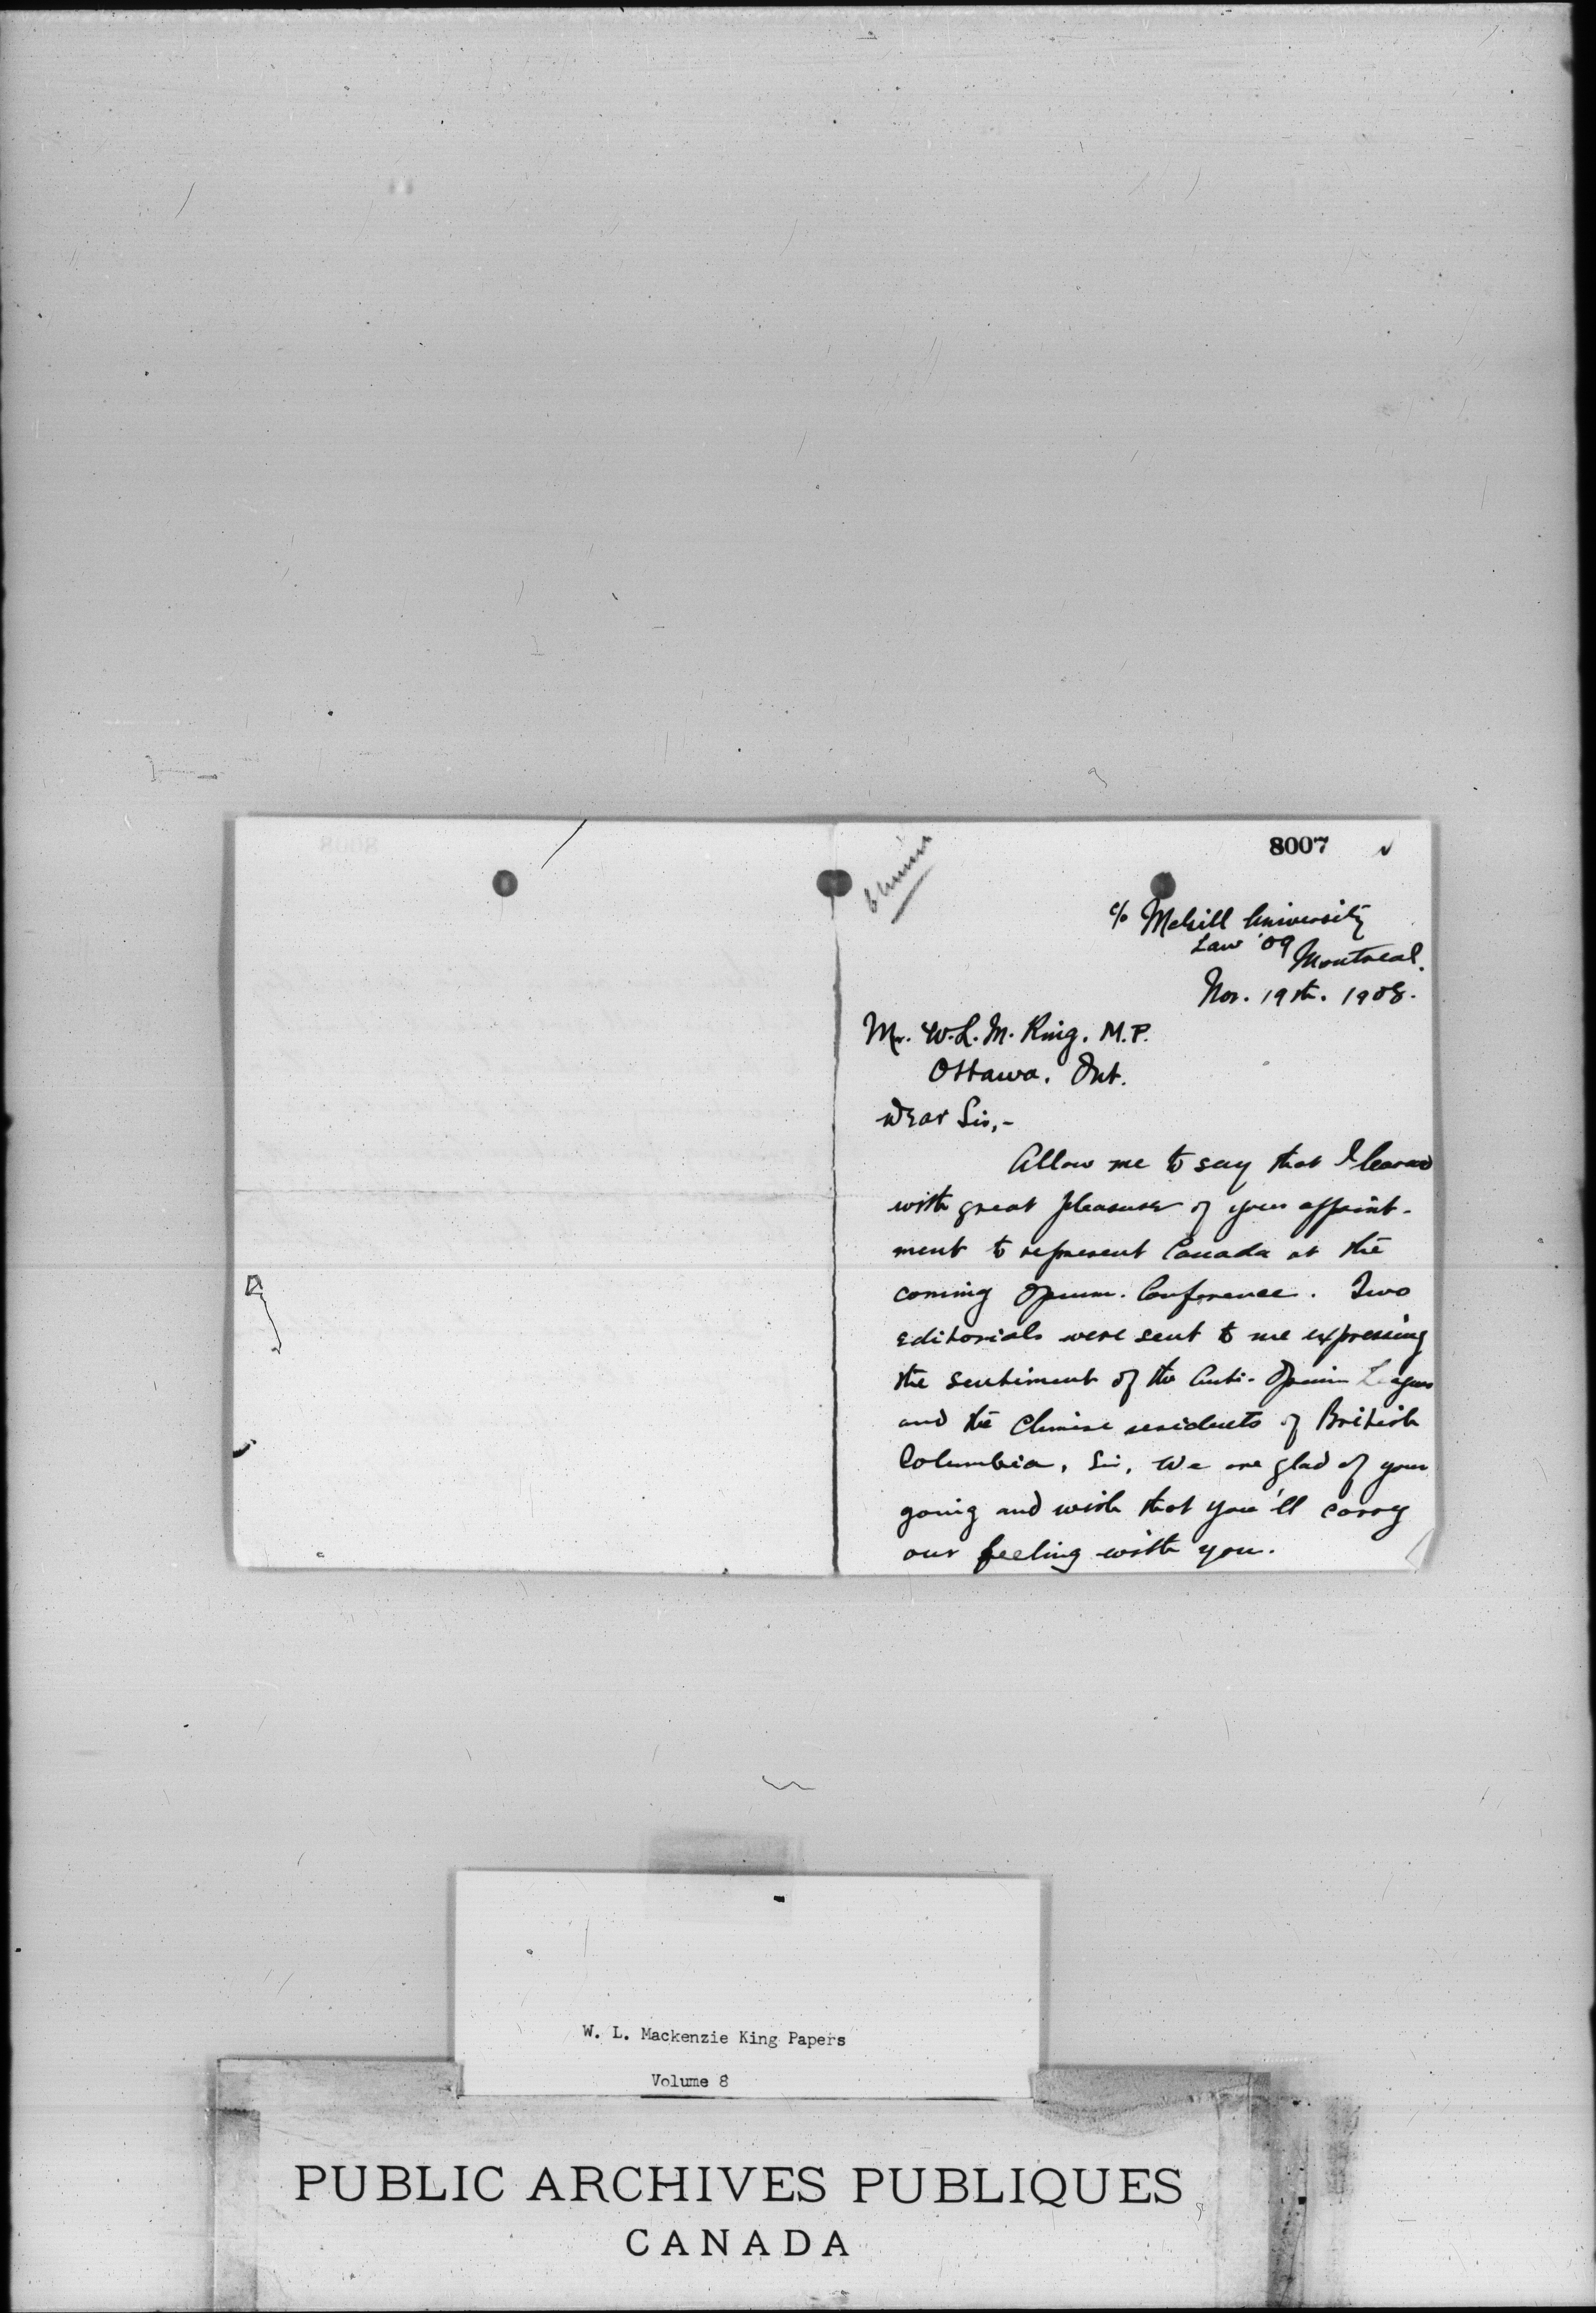 8007
c/o McGill University
Law '09 Montreal.
Nov. 19th. 1908.
Mr. W. L. M. King, M.P.
Ottawa, Ont.
Dear Sir,-
Allow me to say that I learned
with great pleasure of your appoint-
ment to represent Canada at the
coming Opium Conference. Two
editorials were sent to me expressing
the sentiment of the Anti-Opium League
and the Chinese residents of British
Columbia, Sir, we are glad of your
going and wish that you'll carry
our feeling with you.
W. L. Mackenzie King Papers
Volume 8
PUBLIC ARCHIVES PUBLIQUES
CANADA